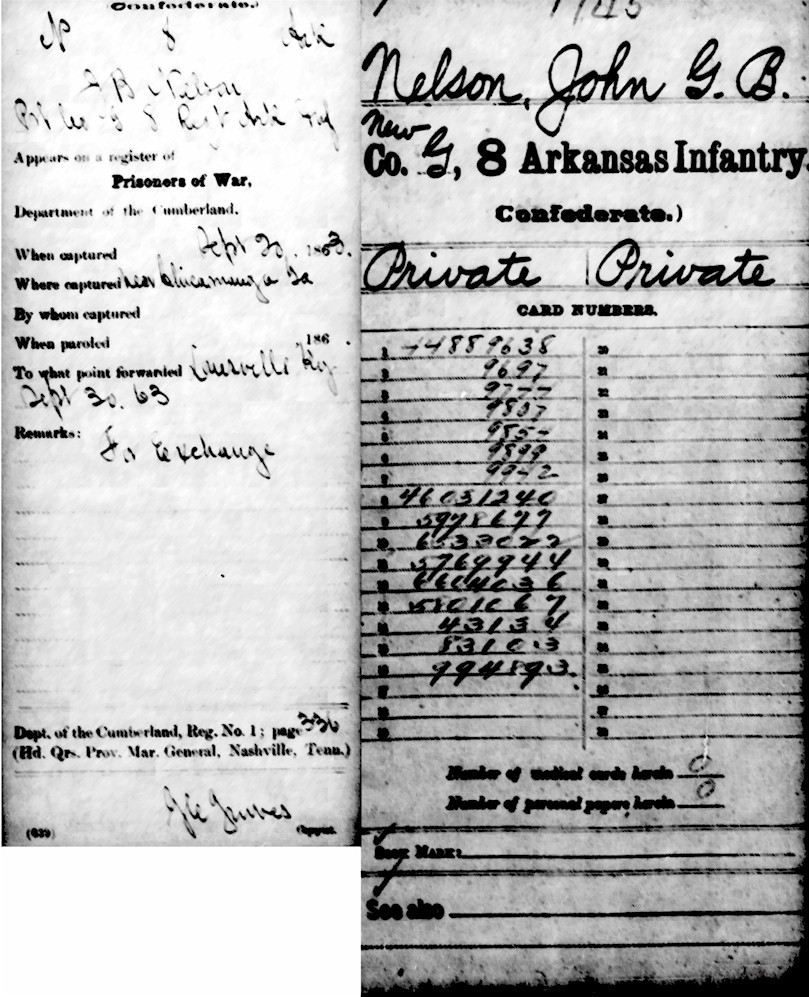 Confederate.)
N 8 Ark
J B Nelson
Pvt Co G 8 Reg't Ark Inf
Appears on a register of
Prisoners of War,
Department of the Cumberland.
When captured Sept 20, 1863.
Where captured Near Chicamauga Ga
By whom captured
When paroled 186 .
To what point forwarded Louisville Ky
Sept 30. 63
Remarks:
For Exchange
Dept. of the Cumberland, Reg. No. 1; page 336
(Hd. Qrs. Prov. Mar. General, Nashville, Tenn.)
(639) Copyist.
Nelson, John G. B.
New
Co. G, 8 Arkansas Infantry.
Confederate.)
Private Private
CARD NUMBERS.
1 44889638 20
2 9697 21
3 22
4 9807
5 24
6 9899
7
8 46051240
9 5978677
10
11 5769944
12 6664036
13 5801067
14 43134
15 83103
16 994893.
17
18
19
Number of medical cards herein 0
Number of personal papers herein 0
BOOK MARK:
See also